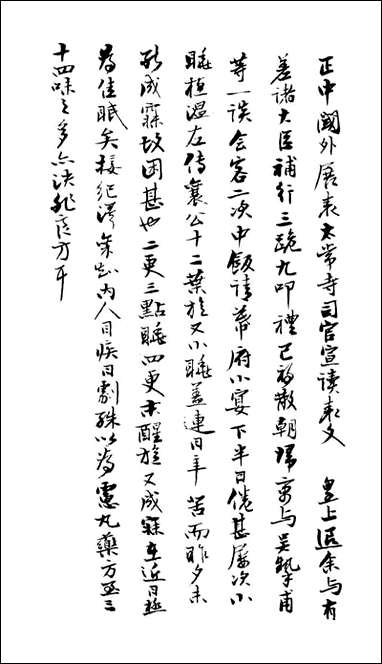 正中閾外展表太常寺司官宣读表文　皇上隨余与有
差諸大臣補行三跪九叩禮已初散朝歸寓与吳摯甫
等一談会客二次中飯請幕府小宴下半日倦甚屡次小
睡植温左传襄公十二葉旋又小睡蓋連日辛苦而昨夕未
能成寐故困甚也二更三點睡四更末醒旋又成寐在近日極
為佳眠矣接纪泽等函内人目疾日劇殊以為慮丸藥方至三
十四味之多亦決非良方耳